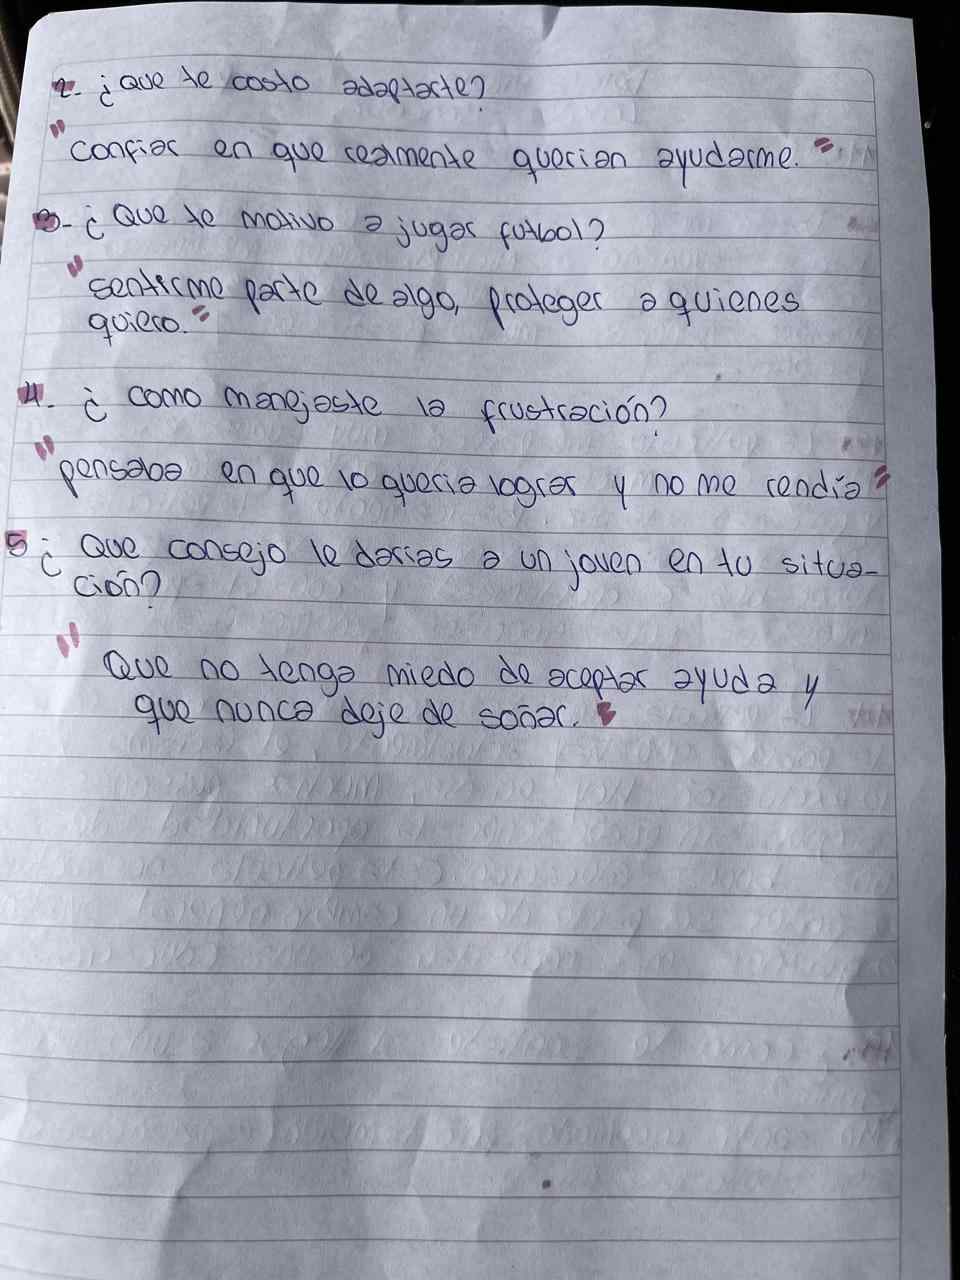 2- ¿Que te costo adaptarte?
"Confiar en que realmente querian ayudarme."
3- ¿Que te motivo a jugar futbol?
"sentirme parte de algo, proteger a quienes
quiero."
4- ¿como manejaste la frustración?
"pensaba en que lo queria lograr y no me rendía"
5 ¿Que consejo le darias a un joven en tu situa-
ción?
"Que no tenga miedo de aceptar ayuda y
que nunca deje de soñar."